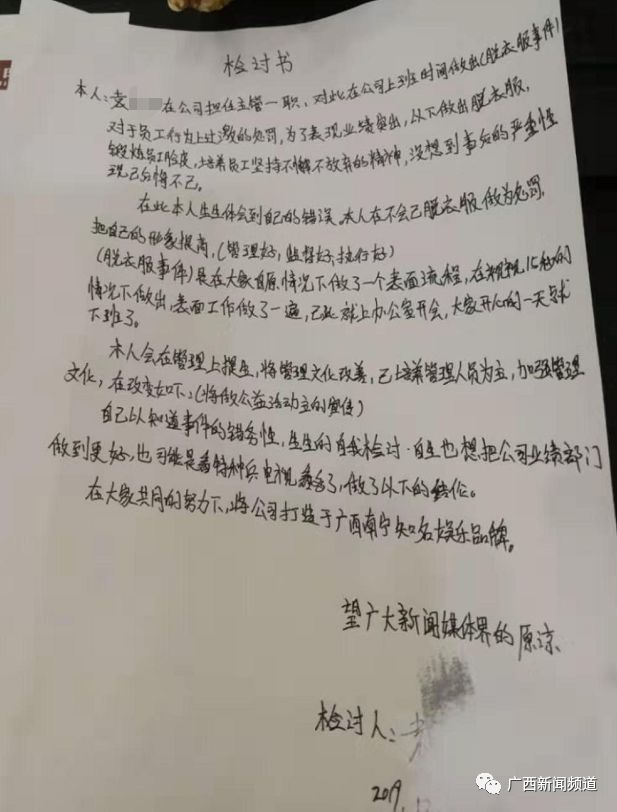 检讨书
本人:袁 在公司担任主管一职,对此在公司上班时间做出(脱衣服事件)
对于员工行为上过激的处罚,为了表现业绩突出,以下做出脱衣服,
锻炼员工脸皮,培养员工坚持不懈不放弃的精神,没想到事后的严重性
现已后悔不已。
在此本人生生体会到自己的错误,本人在不会已脱衣服做为处罚,
把自己的形象提高,(管理好,监督好,执行好)
(脱衣服事件)是在大家自原情况下做了一个表面流程,在视视15秒的
情况下做出,表面工作做了一遍,已此就上办公室开会,大家开心的一天就
下班了。
本人会在管理上提生,将管理文化改善,已培养管理人员为主,加强管理
文化,在改变如下:(将做公益活动主的宣传)
自己以知道事件的错务性,生生的自我检讨.自生也想把公司业绩部门
做到更好,也可能是看特种兵电视 了,做了以下的结伦。
在大家共同的努力下,将公司打造于广西南宁知名娱乐品牌。
望广大新闻媒体界的原谅、
检讨人:袁
2019.
广西新闻频道